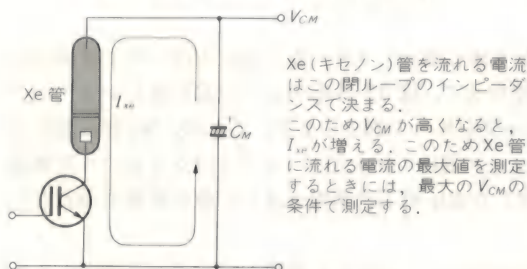 V_CM
Xe管
I_xe
+
C_M
Xe(キセノン)管を流れる電流
はこの閉ループのインピーダ
ンスで決まる.
このためV_CMが高くなると,
I_xeが増える.このためXe管
に流れる電流の最大値を測定
するときには,最大のV_CMの
条件で測定する.